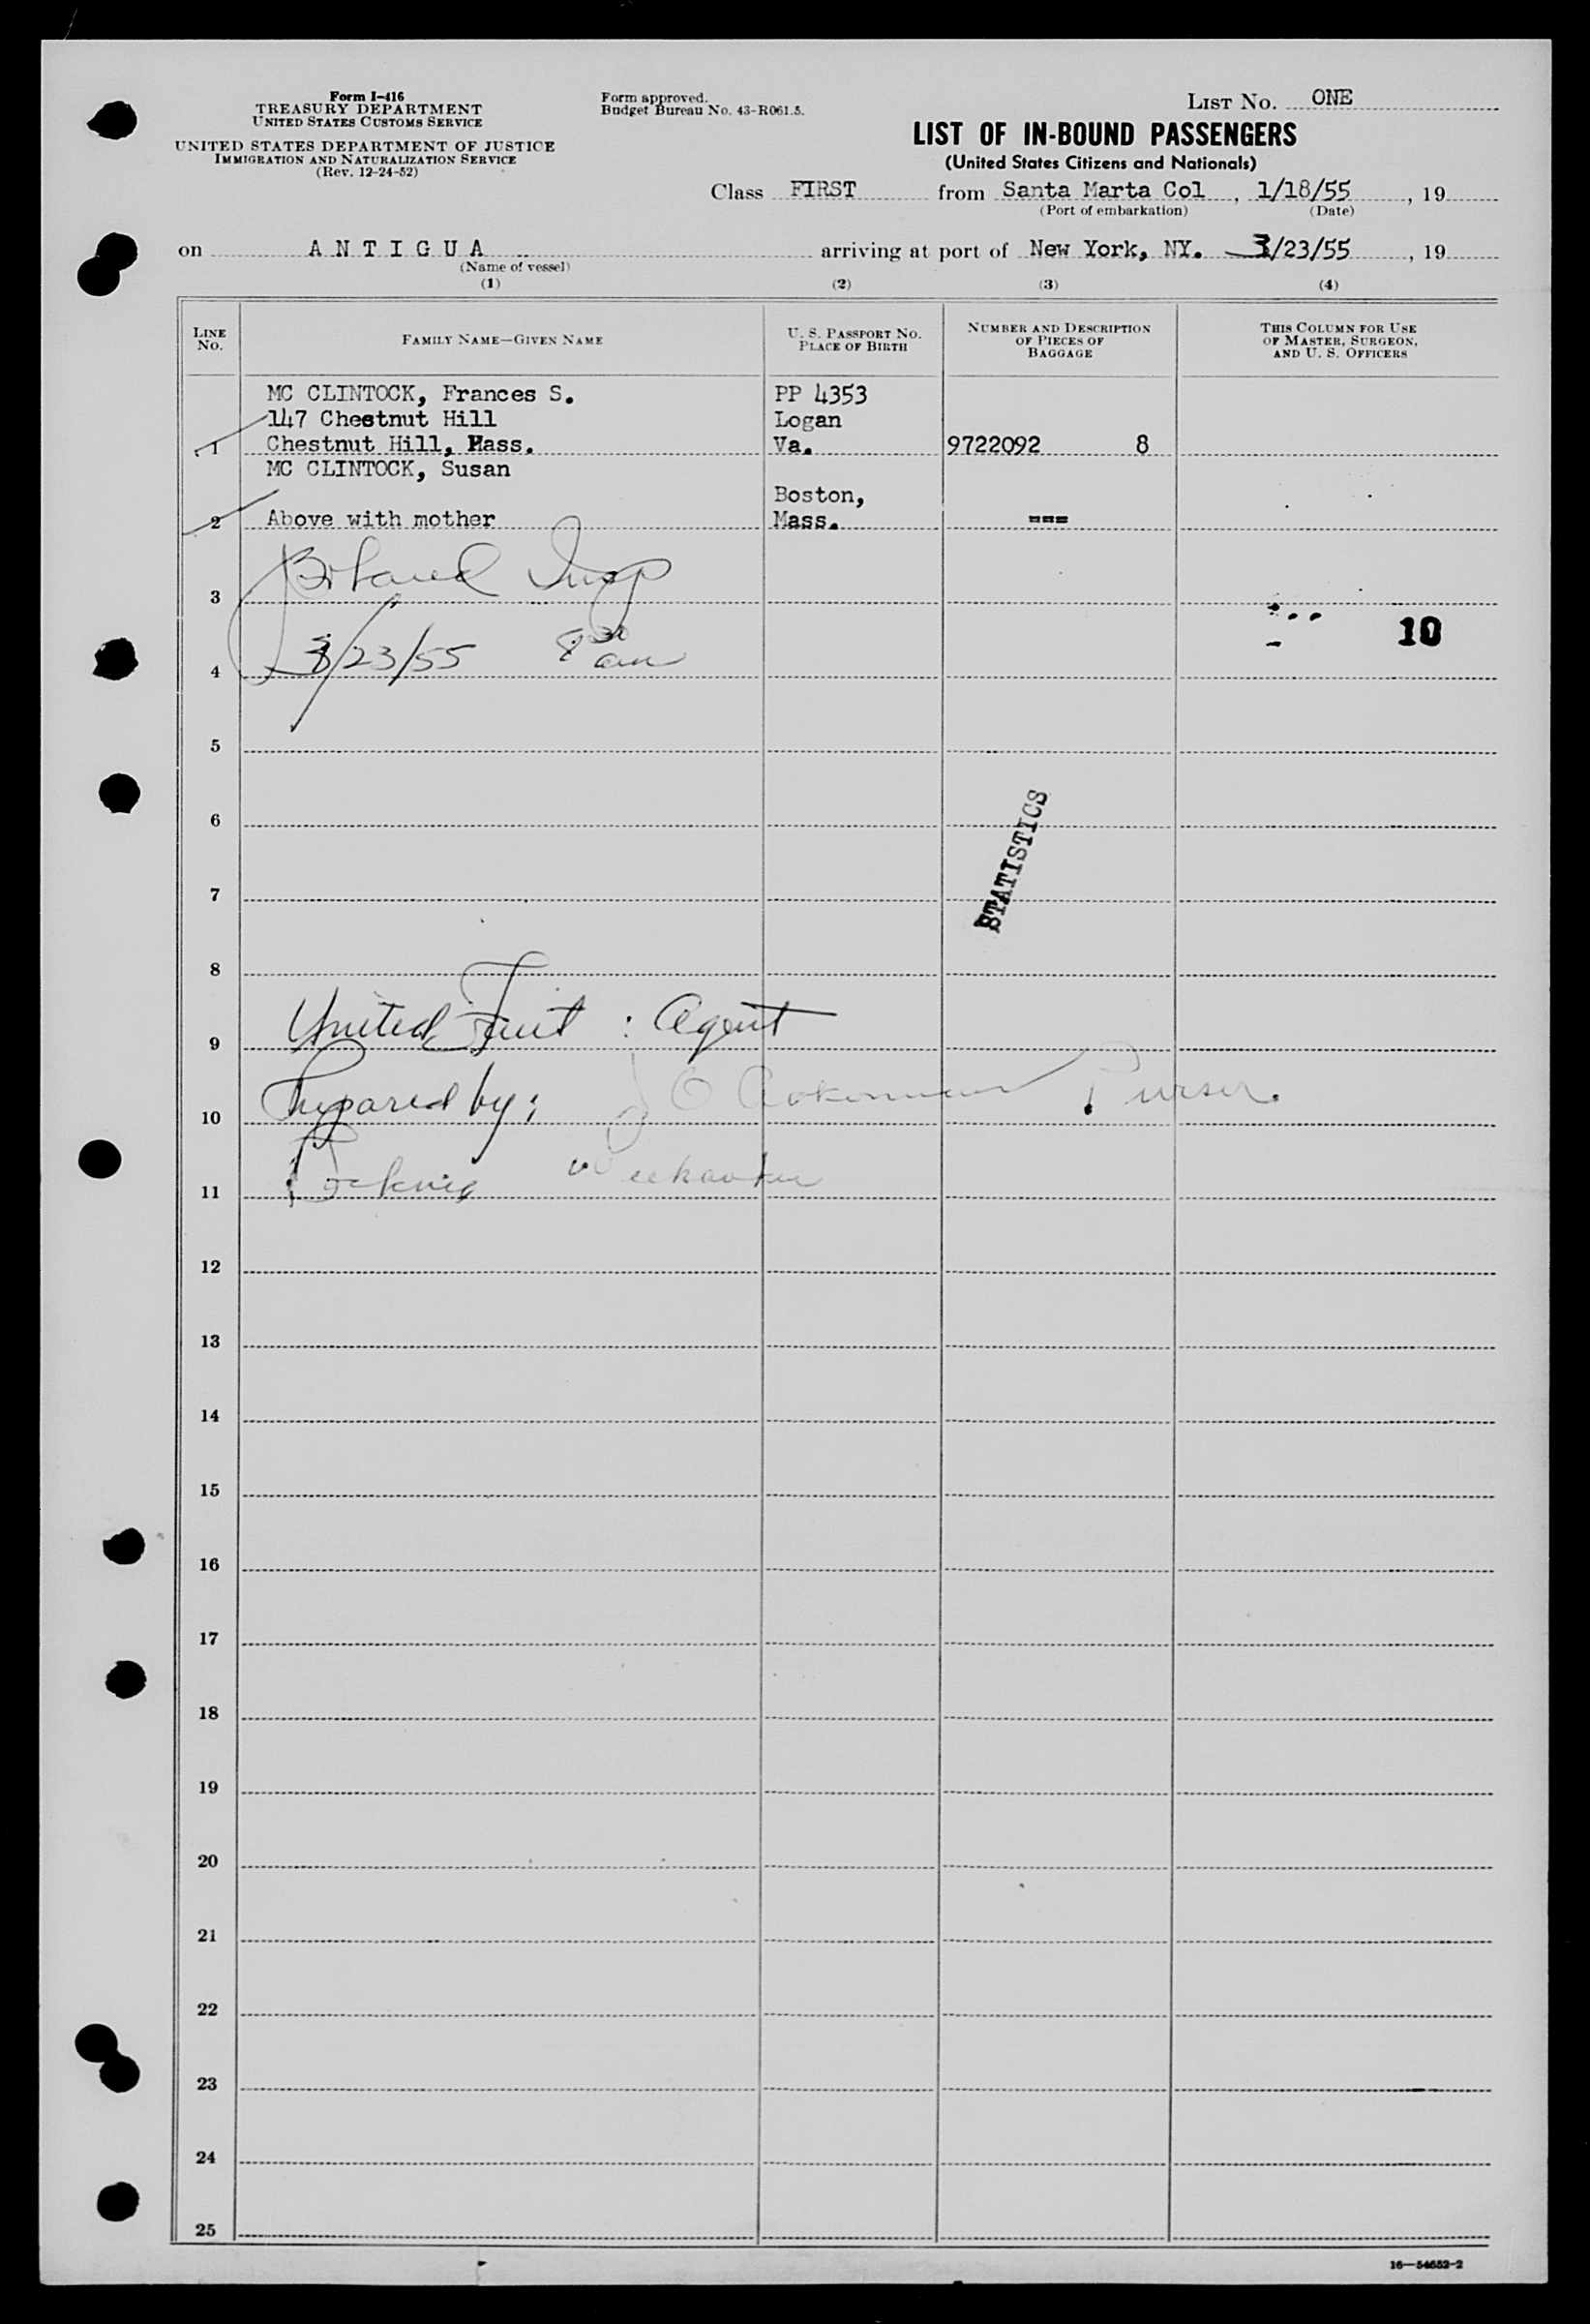 Form I-416
TREASURY DEPARTMENT
UNITED STATES CUSTOMS SERVICE
UNITED STATES DEPARTMENT OF JUSTICE
IMMIGRATION AND NATURALIZATION SERVICE
(Rev. 12-24-52)
Form approved.
Budget Bureau No. 43-R061.5.
LIST NO. ONE
LIST OF IN-BOUND PASSENGERS
(United States Citizens and Nationals)
Class FIRST from Santa Marta Col, 1/18/55, 19
(Port of embarkation) (Date)
on ANTIGUA arriving at port of New York, NY. /23/55, 19
(Name of vessel)
(1) (2) (3) (4)
LINE NO.
FAMILY NAME—GIVEN NAME
U. S. PASSPORT NO.
PLACE OF BIRTH
NUMBER AND DESCRIPTION
OF PIECES OF
BAGGAGE
THIS COLUMN FOR USE
OF MASTER, SURGEON,
AND U. S. OFFICERS
MC CLINTOCK, Frances S. PP 4353
147 Chestnut Hill Logan
1 Chestnut Hill, Mass. Va. 9722092 8
MC CLINTOCK, Susan
Boston,
2 Above with mother Mass. ===
Insp
3
10
/23/55 8 30 am
4
5
6
STATISTICS
7
8
United Fruit : Agent
9
Prepared by: Purser.
10
Weehawken
11
12
13
14
15
16
17
18
19
20
21
22
23
24
25
16—54652-2